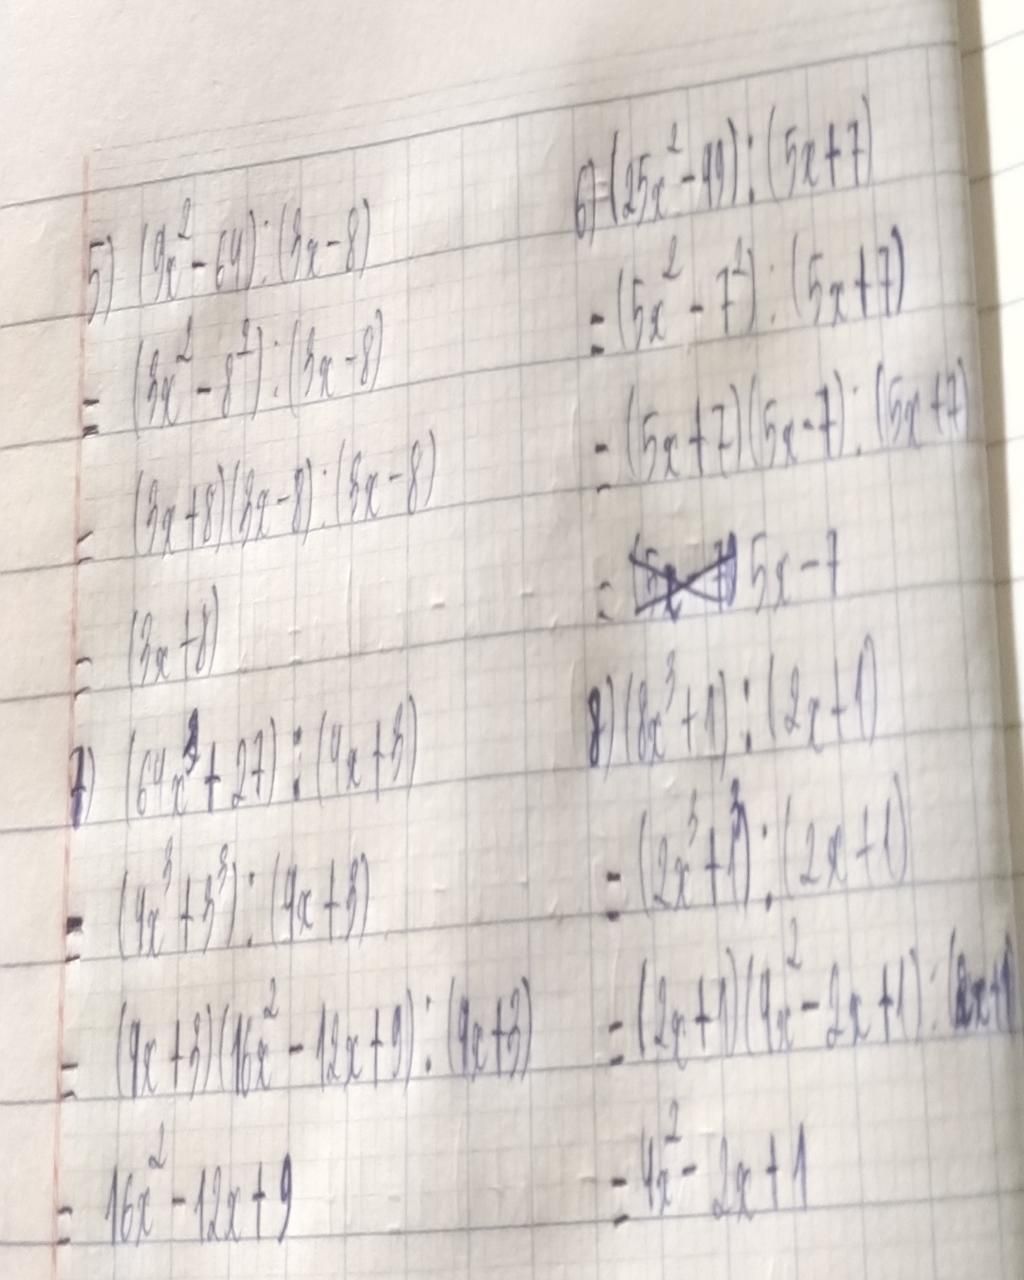 5) (9x² - 64) : (3x - 8)
= (3x² - 8²) : (3x - 8)
= (3x + 8)(3x - 8) : (3x - 8)
= (3x + 8)
7) (64x³ + 27) : (4x + 3)
= (4x³ + 3³) : (4x + 3)
= (4x + 3)(16x² - 12x + 9) : (4x + 3)
= 16x² - 12x + 9
6) (25x² - 49) : (5x + 7)
= (5x² - 7²) : (5x + 7)
= (5x + 7)(5x - 7) : (5x + 7)
= 5x - 7
8) (8x³ + 1) : (2x + 1)
= (2x³ + 1³) : (2x + 1)
= (2x + 1)(4x² - 2x + 1) : (2x + 1)
= 4x² - 2x + 1